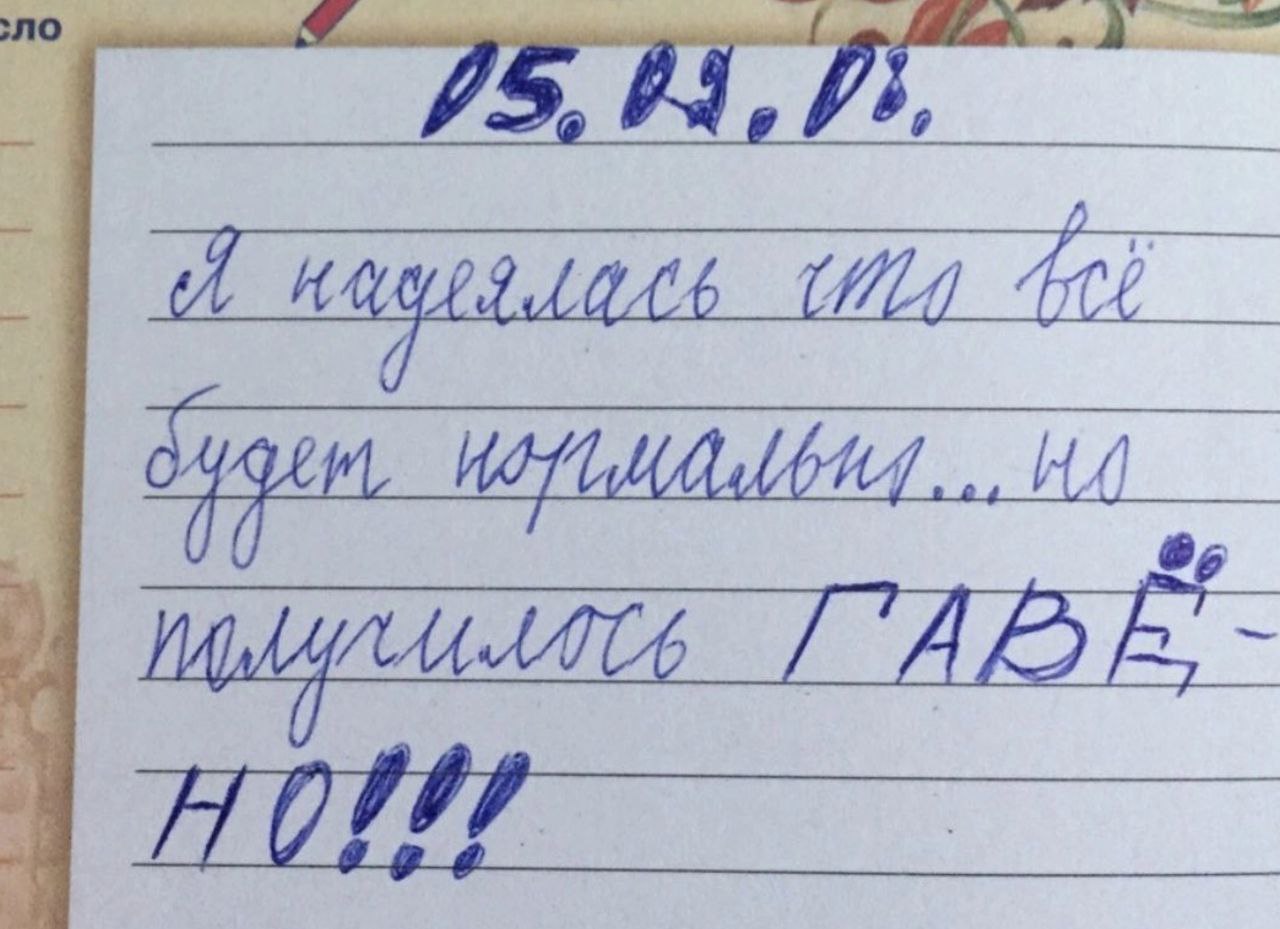 сло
05.09.08.
Я надеялась что всё
будет нормально...но
получилось ГАВЁ-
НО!!!